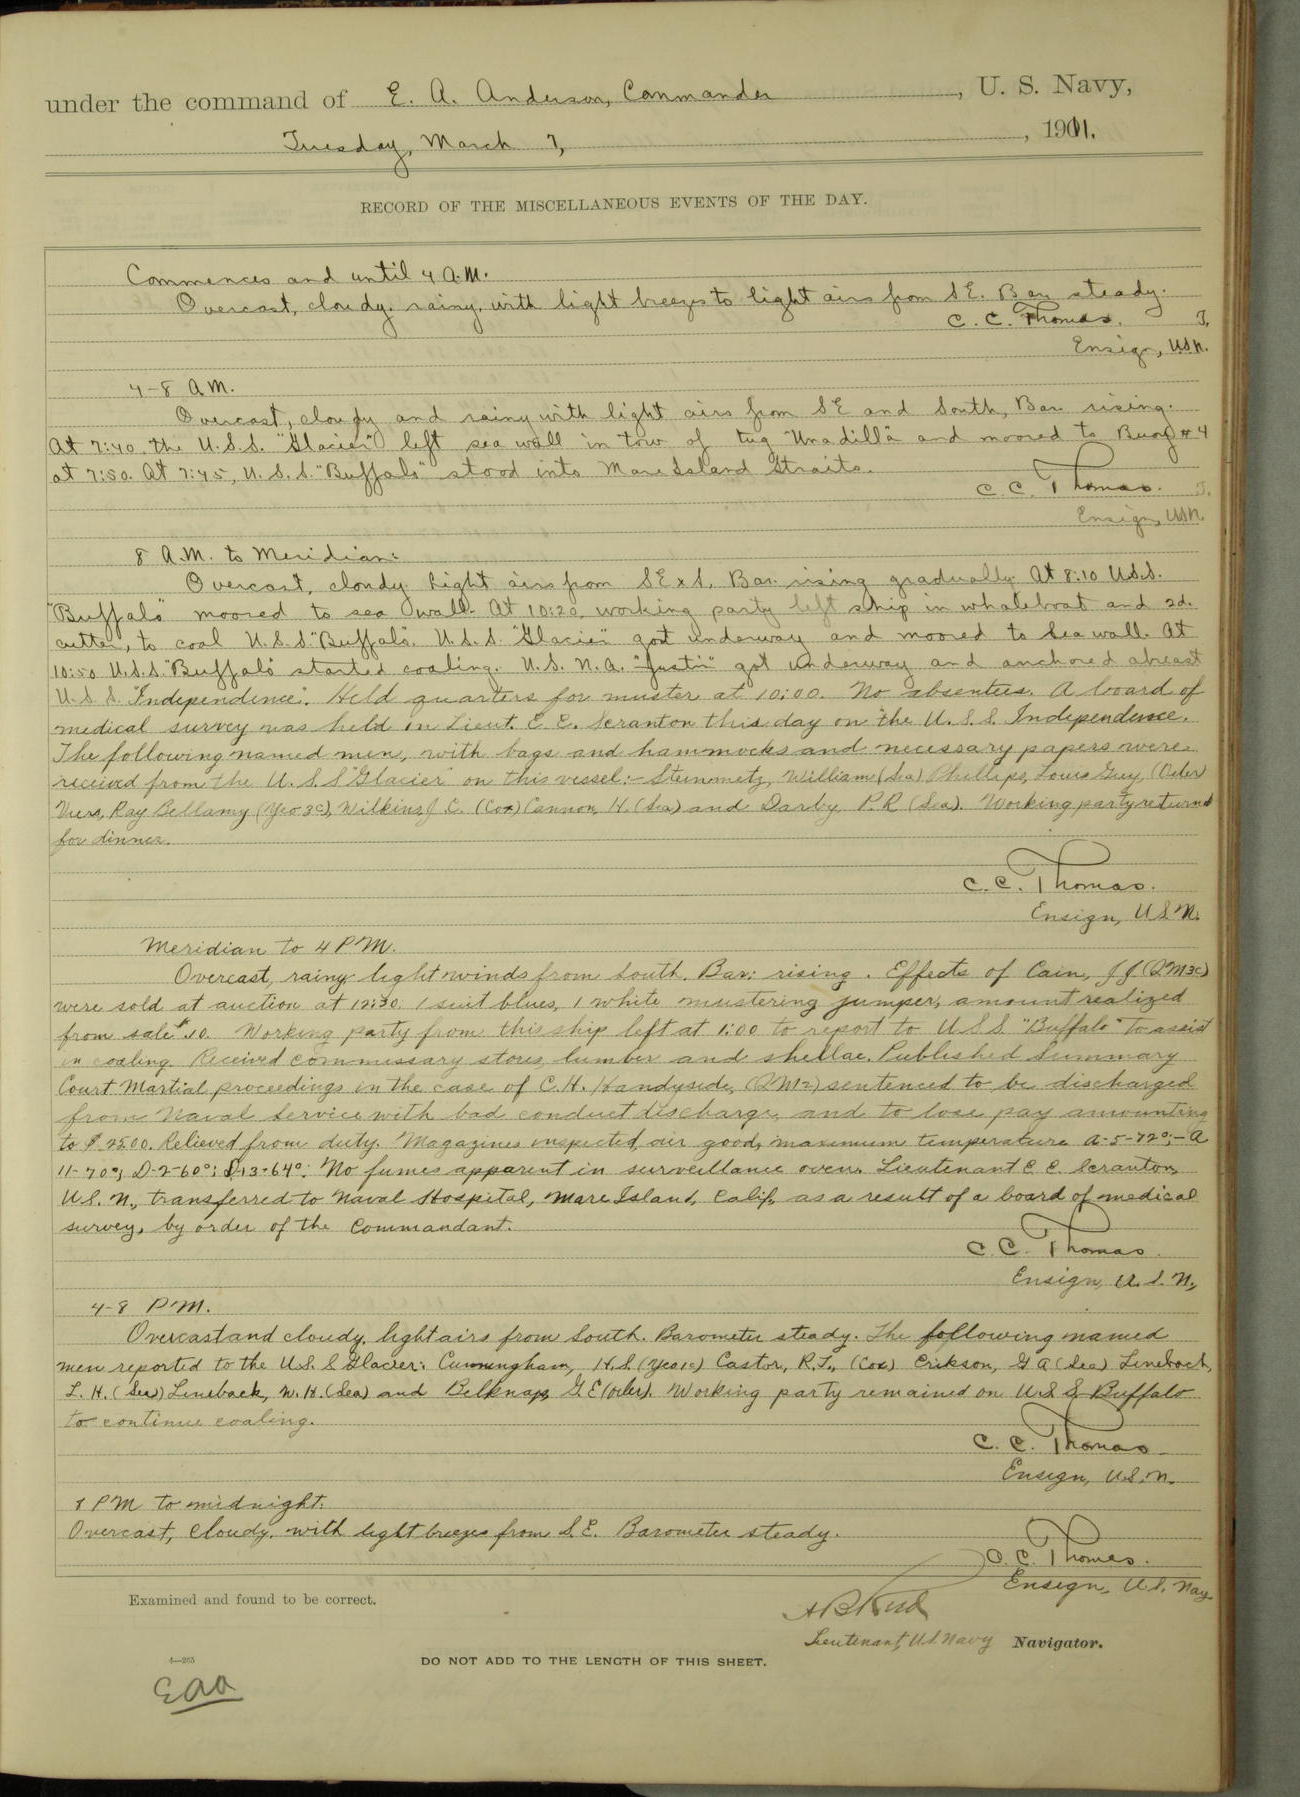 under the command of E. A. Anderson, Commander, U. S. Navy,
Tuesday, March 7, 1911.
RECORD OF THE MISCELLANEOUS EVENTS OF THE DAY.
Commences and until 4 A.M.
Overcast, cloudy, rainy, with light breezes to light airs from SE. Bar steady.
C. C. Thomas.
Ensign, USN.
4-8 AM.
Overcast, cloudy and rainy with light airs from SE and South, Bar rising.
At 7:40 the U.S.S. "Glacier" left sea wall in tow of tug "Unadilla" and moored to Buoy #4
at 7:50. At 7:45, U.S.S. "Buffalo" stood into Mare Island Straits.
C. C. Thomas.
Ensign, USN.
8 A.M. to Meridian:
Overcast, cloudy. Light airs from SE x S. Bar. rising gradually. At 8:10 U.S.S.
"Buffalo" moored to sea wall. At 10:20, working party left ship in whaleboat and 2d.
cutter, to coal U.S.S "Buffalo". U.S.S. "Glacier" got underway and moored to sea wall. At
10:50 U.S.S. "Buffalo" started coaling. U.S.N.A. "Justin" got underway and anchored abreast
U.S.S. "Independence". Held quarters for muster at 10:00. No absentees. A board of
medical survey was held on Lieut. E. E. Scranton this day on the U.S.S. Independence.
The following named men, with bags and hammocks and necessary papers were
received from the U.S.S "Glacier" on this vessel:- Steinmetz, William (Sea) Phillips, Louis Guy, (Oiler)
Viers, Ray Bellamy (Yeo 3c), Wilkins, J C. (Cox) Cannon, H. (Sea) and Darby P.R (Sea). Working party returned
for dinner.
C. C. Thomas.
Ensign, U.S.N.
Meridian to 4 P.M.
Overcast, rainy, light winds from South. Bar: rising. Effects of Cain, J J (QM3c)
were sold at auction at 12:30. 1 suit blues, 1 white mustering jumper, amount realized
from sale $.10. Working party from this ship left at 1:00 to report to U.S.S. "Buffalo" to assist
in coaling. Received commissary stores, lumber and shellac. Published Summary
Court Martial proceedings in the case of C.H. Handyside, sentenced to be discharged
from Naval Service with bad conduct discharge, and to lose pay amounting
to Relieved from duty. Magazines inspected, air good, maximum temperature A-5-72°;-A
11-70°; D-2-60°; D-13-64°: No fumes apparent in surveillance oven. Lieutenant E. E. Scranton,
U.S. N., transferred to Naval Hospital, Mare Island, Calif., as a result of a board of medical
survey, by order of the Commandant.
C. C. Thomas.
Ensign, U. S. N.,
4-8 P.M.
Overcast and cloudy, light airs from South. Barometer steady. The following named
men reported to the U.S.S Glacier: Cunningham, H.S. (Yeo 1c) Castor, R.T., (Cox) Erikson, G A (Sea) Lineback,
L. H. (Sea) Lineback, W. H. (Sea) and Belknap, G. E (oiler). Working party remained on U.S.S. Buffalo
to continue coaling.
C. C. Thomas
Ensign, U.S.N.
8 PM to midnight:
Overcast, cloudy, with light breezes from S.E. Barometer steady.
C. C. Thomas.
Ensign, U.S. Navy
Examined and found to be correct.
Lieutenant, U.S. Navy Navigator.
4—265
DO NOT ADD TO THE LENGTH OF THIS SHEET.
EAA